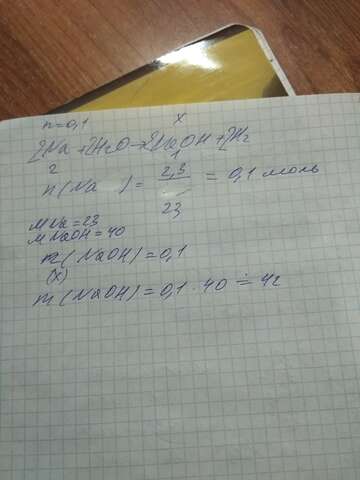 n=0,1 x
2Na + 2H2O → 2NaOH + H2
2 1
n(Na) = 2,3 / 23 = 0,1 моль
M Na = 23
M NaOH = 40
n(NaOH) = 0,1
(x)
m(NaOH) = 0,1 · 40 = 4г